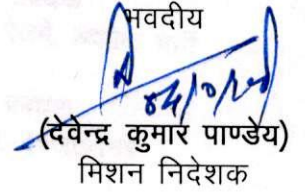 भवदीय
(देवेन्द्र कुमार पाण्डेय)
मिशन निदेशक